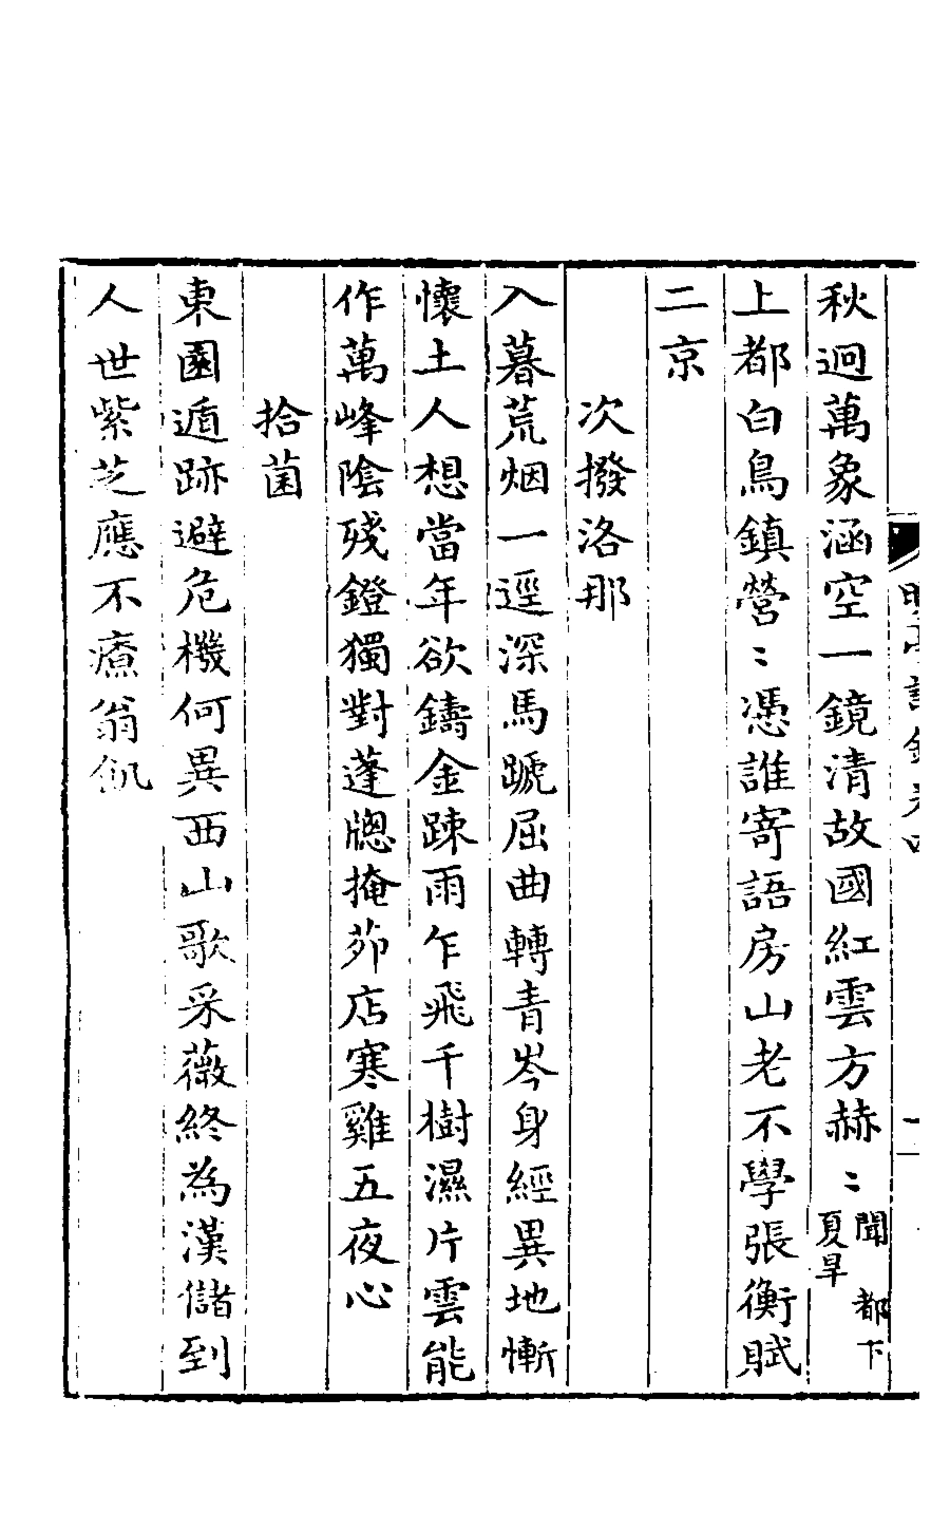 秋迥萬象涵空一鏡清故國紅雲方赫〻聞都下夏旱
上都白鳥鎮營〻憑誰寄語房山老不學張衡賦
二京
次撥洛那
入暮荒烟一逕深馬蹏屈曲轉青岑身經異地慚
懷土人想當年欲鑄金踈雨乍飛千樹濕片雲能
作萬峰陰殘鐙獨對蓬牕掩茆店寒雞五夜心
拾菌
東園遁跡避危機何異西山歌采薇終為漢儲到
人世紫芝應不療翁飢